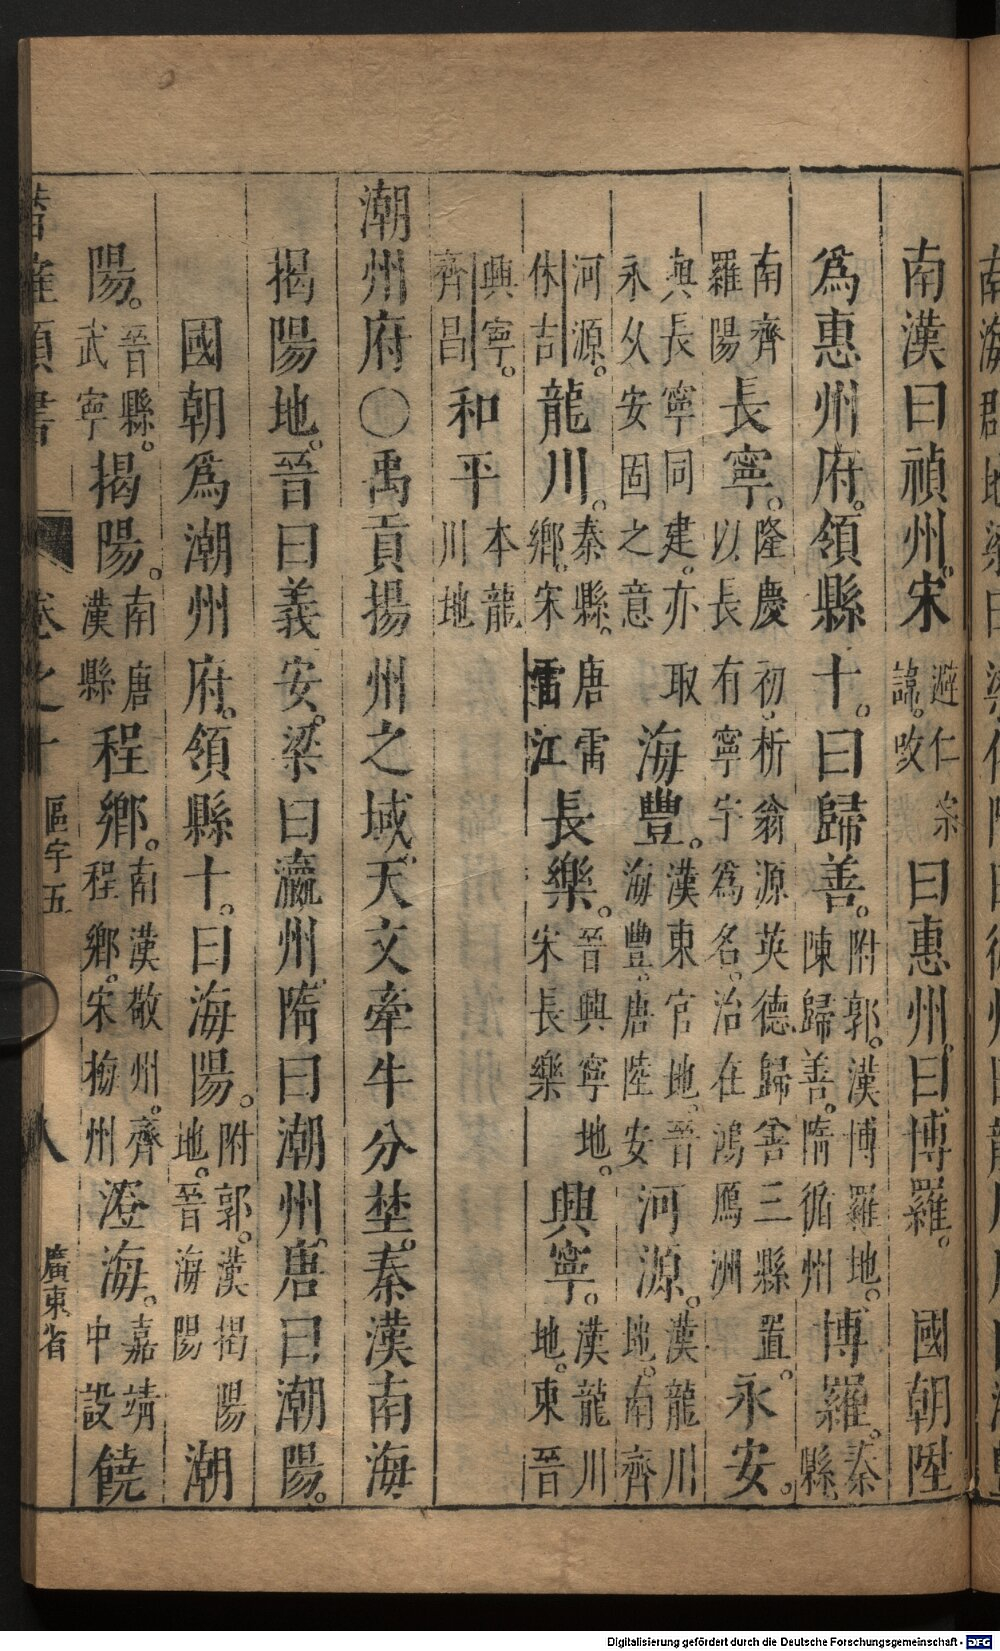 南漢曰禎州。宋避仁宗諱。改曰惠州。曰博羅。國朝陞
爲惠州府。領縣十。曰歸善。附郭。漢博羅地。陳歸善。隋循州博羅。秦縣。
南齊羅陽長寧。隆慶初。析翁源英德歸善三縣置。以長有寧宇爲名。治在鴻鴈洲永安。
與長寧同建。亦取永乆安固之意海豐。漢東官地。晉海豐。唐陸安河源。漢龍川地。南齊
河源。休吉龍川。秦縣。唐雷鄉。宋雷江長樂。晉興寧地。宋長樂興寧。漢龍川地。東晉
興寧。齊昌和平本龍川地
潮州府〇禹貢揚州之域。天文牽牛分埜。秦漢南海
揭陽地。晉曰義安。梁曰瀛州。隋曰潮州。唐曰潮陽。
國朝爲潮州府。領縣十。曰海陽。附郭。漢揭陽地。晉海陽潮
陽。晉縣。武寧揭陽。南唐漢縣程鄉。南漢敬州。齊程鄉。宋梅州澄海。嘉靖中設饒
類書 卷之十 區宇五 八 廣東省
Digitalisierung gefördert durch die Deutsche Forschungsgemeinschaft - DFG